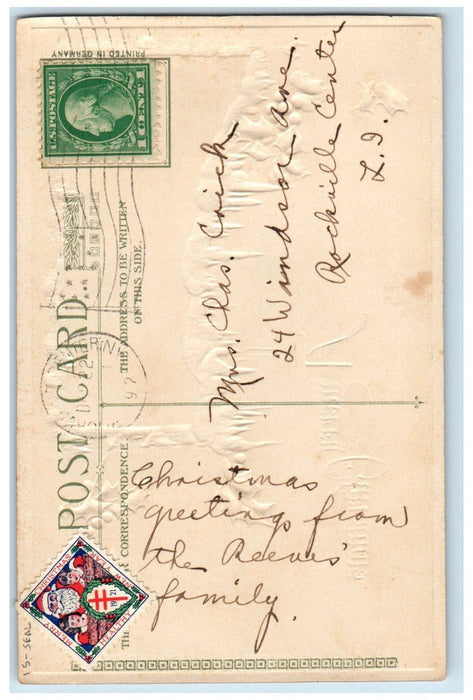 PRINTED IN GERMANY
U.S. POSTAGE
1 CENT 1
POST CARD
THE ADDRESS TO BE WRITTEN
ON THIS SIDE.
CORRESPONDENCE
Mrs. Chas. Crick
24 Windsor Ave.
Rockville Center
L.I.
Christmas
greetings from
the Reeves'
family.
MERRY CHRISTMAS
1921
15-SEAL